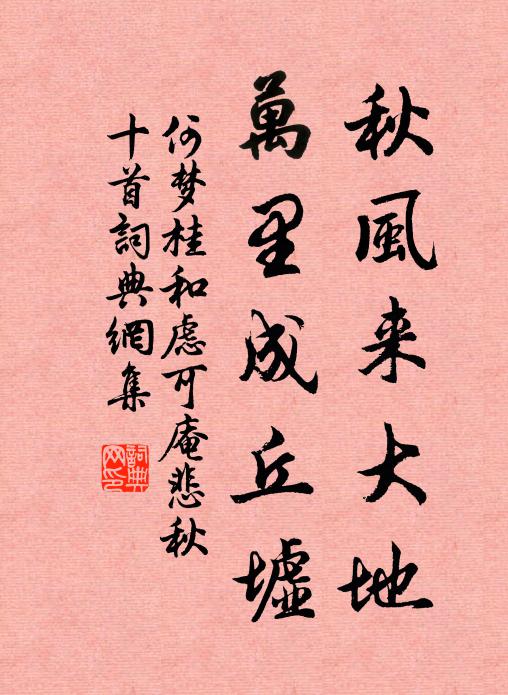 秋風来大地
萬里成丘墟
何梦桂和慮可庵悲秋
十首詞典網集
詞典
网印